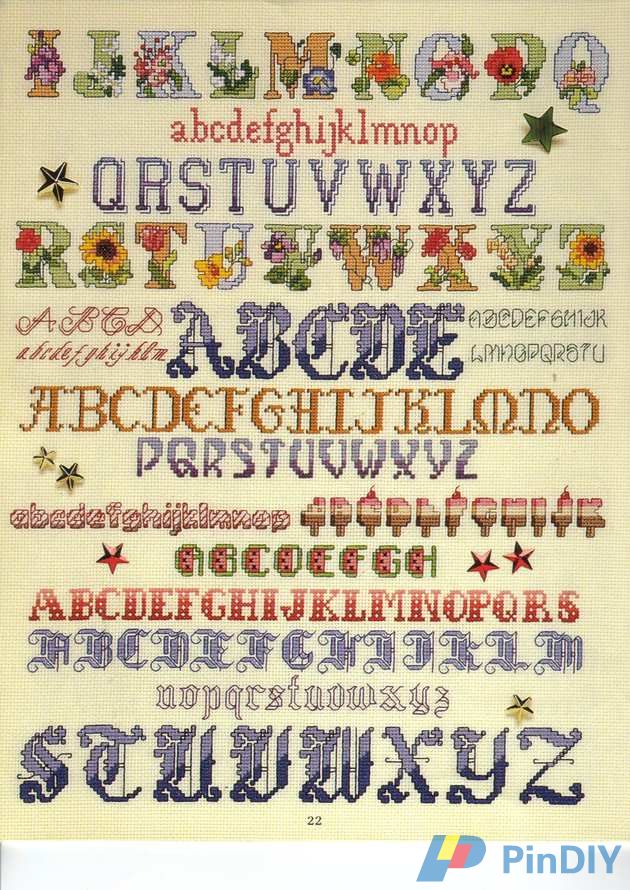 IJKLMNOPQ
abcdefghijklmnop
QRSTUVWXYZ
RSTUVWXYZ
ABCD
abcdefghijklm
ABCDE
ABCDEFGHIJK
LMNOPQRSTU
ABCDEFGHIJKLMNO
PQRSTUVWXYZ
abcdefghijklmnop
ABCDEFGHIJK
ABCDEFGH
ABCDEFGHIJKLMNOPQRS
ABCDEFGHIJKLM
nopqrstuvwxyz
STUVWXYZ
22
PinDIY